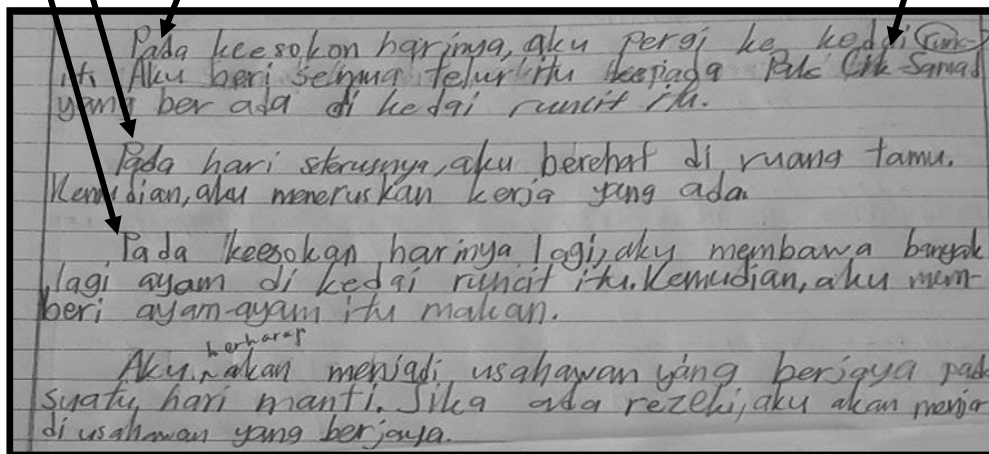 Pada keesokon harinya, aku pergi ke kedai runc-
it. Aku beri semua telur itu kepada Pak Cik Samad
yang ber ada di kedai runcit itu.
Pada hari sterusnya, aku berehat di ruang tamu.
Kemudian, aku meneruskan kerja yang ada.
Pada keesokan harinya lagi, aku membawa banyak
lagi ayam di kedai runcit itu. Kemudian, aku mem-
beri ayam-ayam itu makan.
berharap
Aku akan menjadi usahawan yang berjaya pad
suatu hari manti. Jika ada rezeki, aku akan menja
di usahawan yang berjaya.